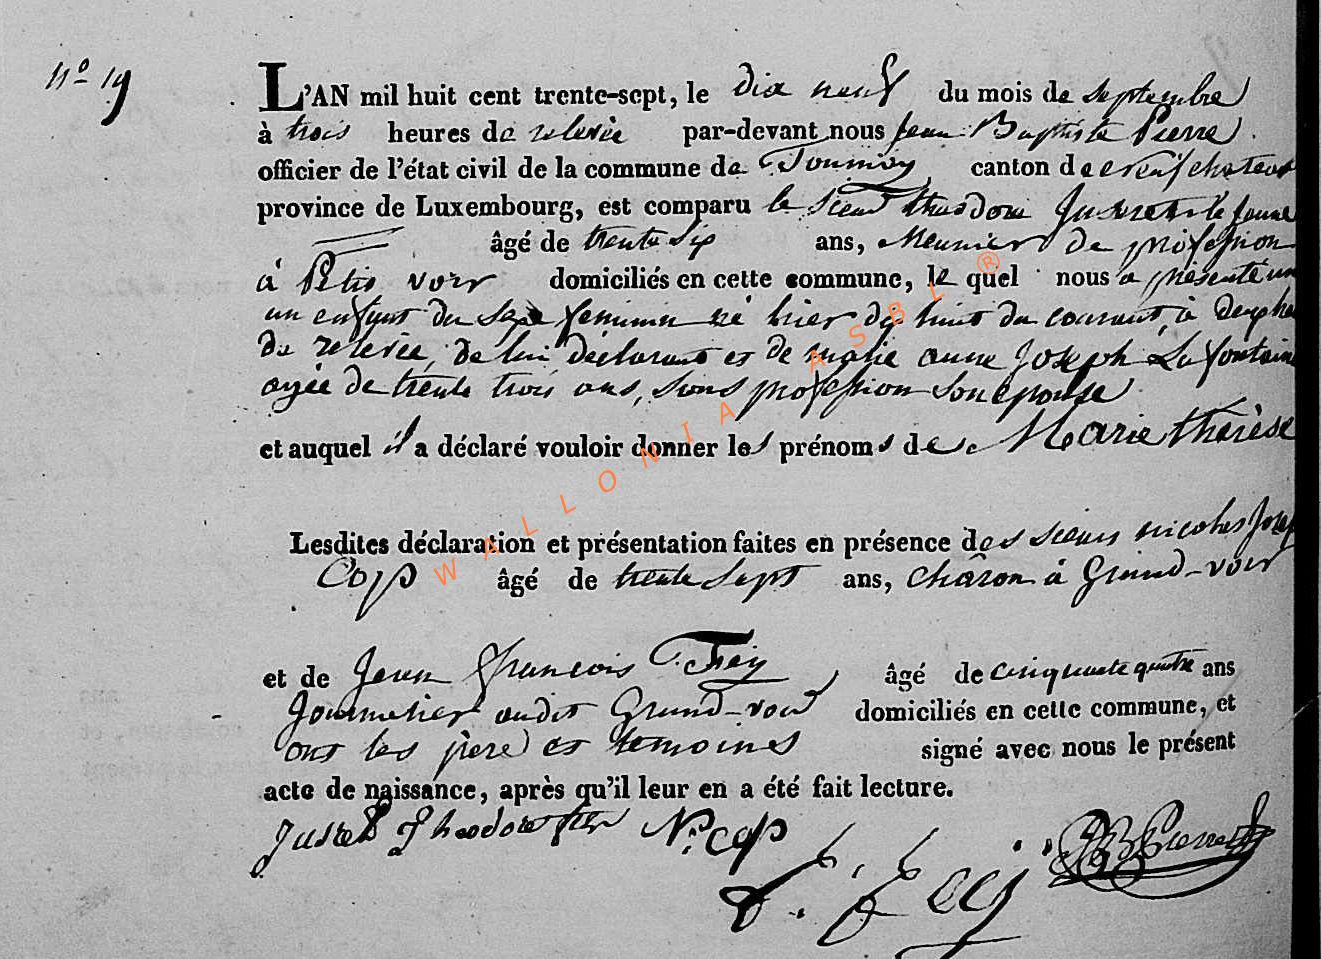 N° 19
L'AN mil huit cent trente-sept, le dix neuf du mois de septembre
à trois heures de relevée par-devant nous Jean Baptiste Pierre
officier de l'état civil de la commune de Tournay canton de Neufchateau
province de Luxembourg, est comparu le Sieur Theodore le Jeune
âgé de trente six ans, Meunier de profession
à Petit voir domiciliés en cette commune, le quel nous a présenté un
un enfant du sexe feminin né hier dix huit du courant, à deux heu
de relevée, de lui déclarant et de Marie anne Joseph Lafontaine
agée de trente trois ans, sans profession son épouse
et auquel il a déclaré vouloir donner les prénoms de Marie thérèse
Lesdites déclaration et présentation faites en présence des sieurs nicolas Josep
Cop âgé de trente sept ans, charon à Grand-voir
et de Jean françois âgé de cinquante quatre ans
Journalier audit Grand-voir domiciliés en cette commune, et
ont les père et temoines signé avec nous le présent
acte de naissance, après qu'il leur en a été fait lecture.
Theodore N: cop
JB Pierre
WALLONIA ASBL ®